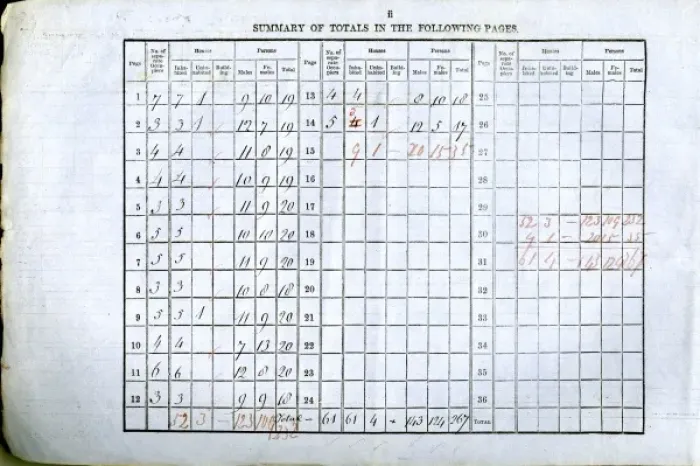 ii
SUMMARY OF TOTALS IN THE FOLLOWING PAGES.
Page No. of sepa- rate Occu- piers Houses Inha- bited Unin- habited Build- ing Persons Males Fe- males Total Page No. of sepa- rate Occu- piers Houses Inha- bited Unin- habited Build- ing Persons Males Fe- males Total Page No. of sepa- rate Occu- piers Houses Inha- bited Unin- habited Build- ing Persons Males Fe- males Total
1 7 7 1 9 10 19 13 4 4 8 10 18 25
2 3 3 1 12 7 19 14 5 1 12 5 17 26
3 4 4 11 8 19 15 9 1 - 20 15 35 27
4 4 4 10 9 19 16 28
5 3 3 11 9 20 17 29 52 3 - 123 109 232
6 5 5 10 10 20 18 30 9 1 - 20 15 35
7 5 5 11 9 20 19 31 61 4 -
8 3 3 10 8 18 20 32
9 5 5 1 11 9 20 21 33
10 4 4 7 13 20 22 34
11 6 6 12 8 20 23 35
12 3 3 9 9 18 24 36
52 3 - 123 109 Total - 61 61 4 - 143 124 267 TOTAL
232